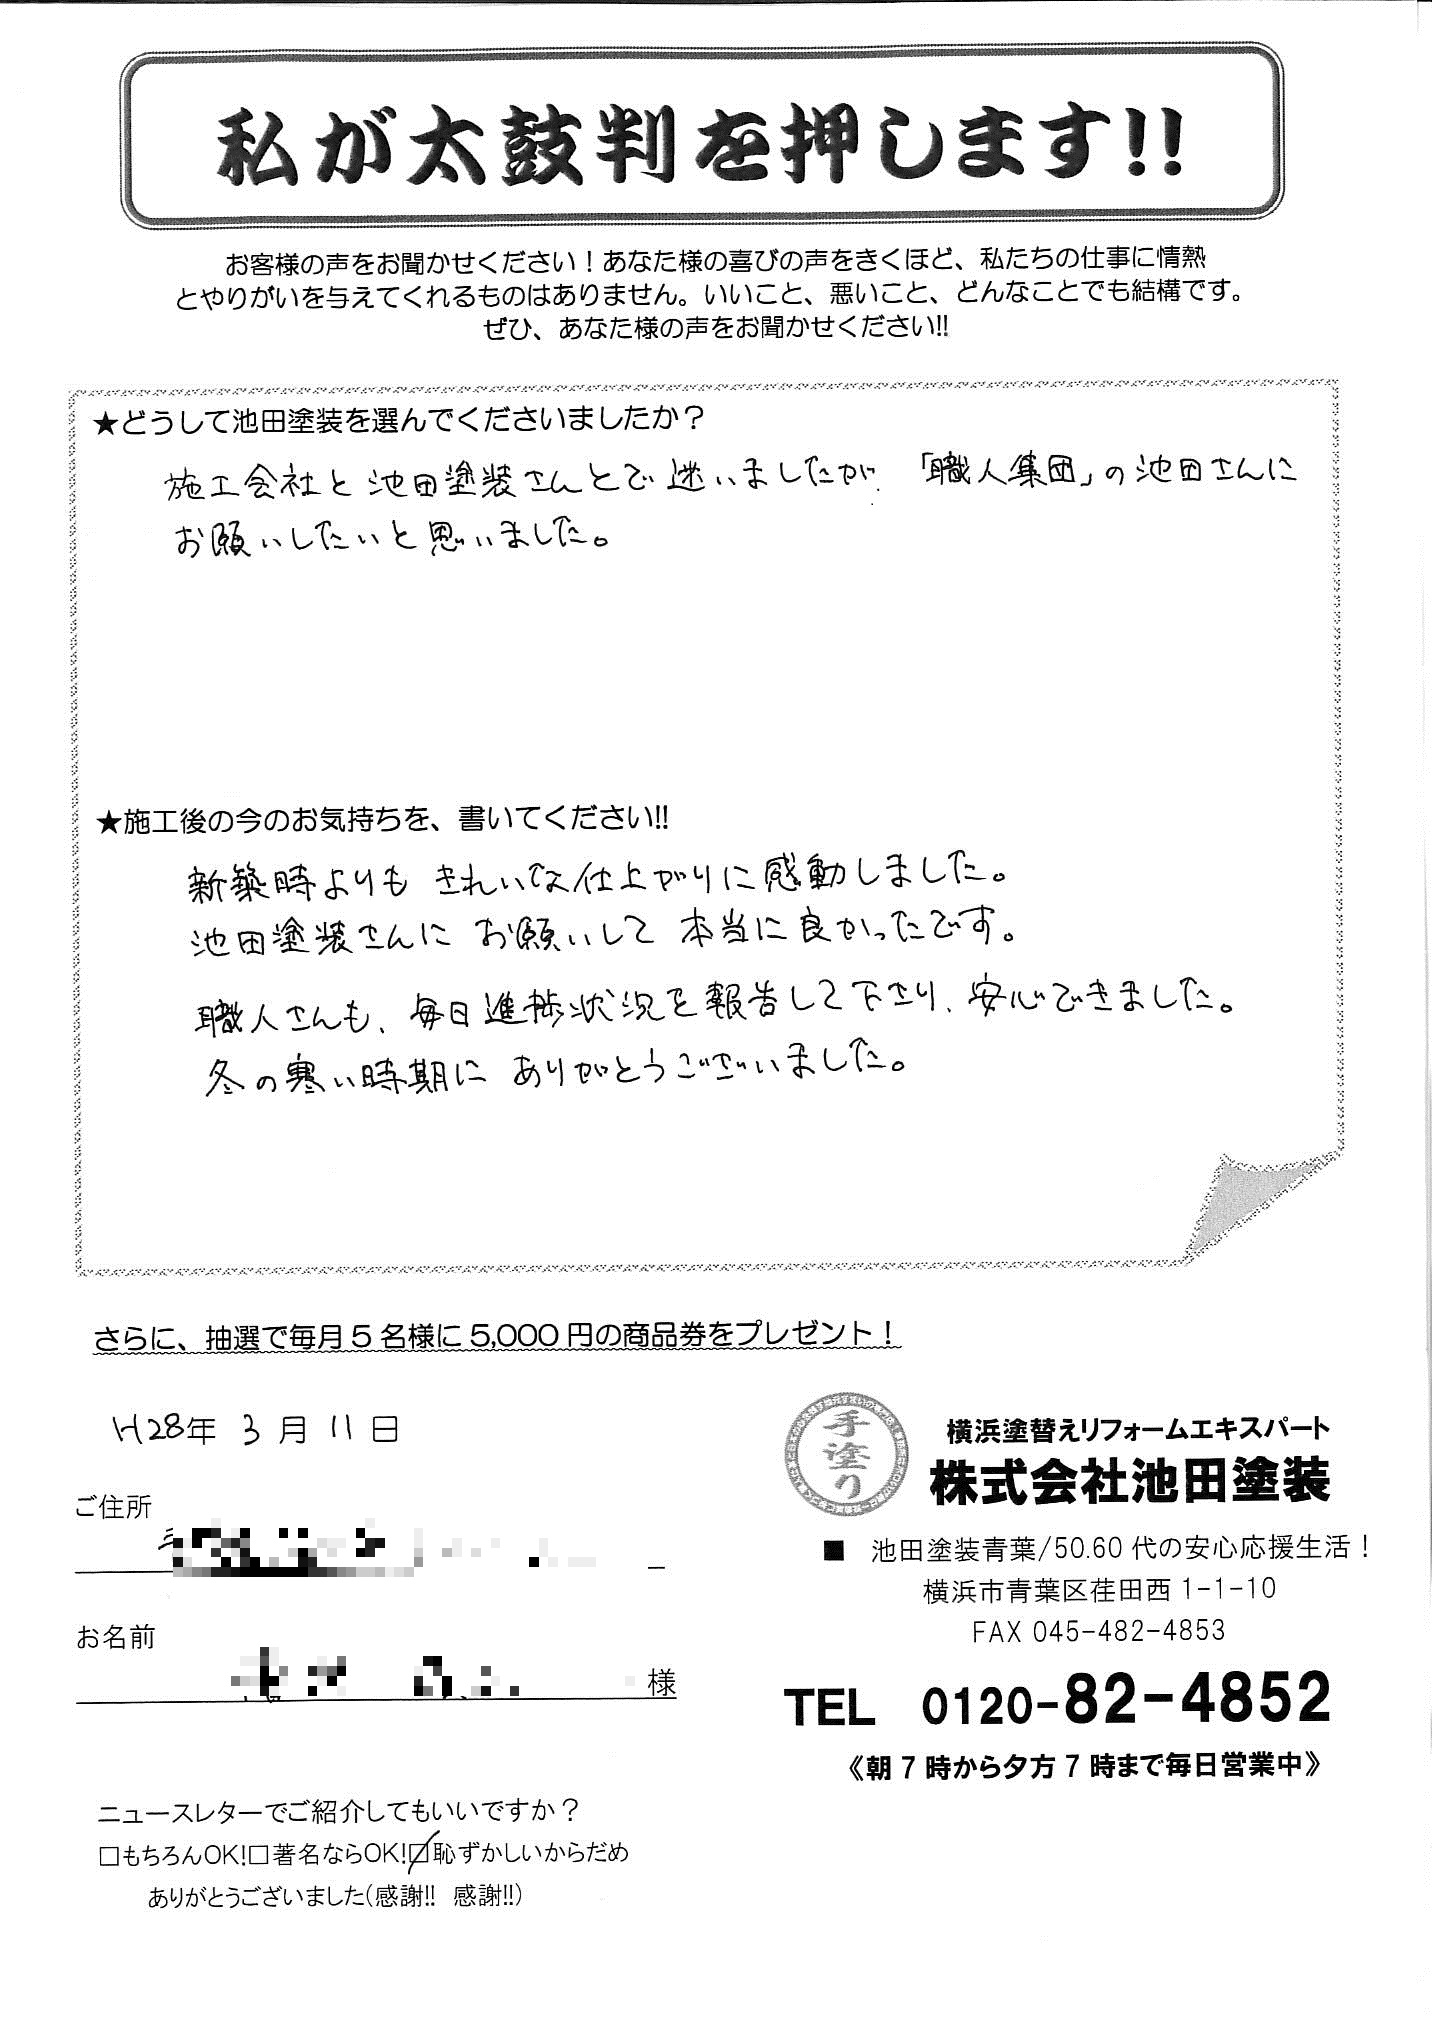 私が太鼓判を押します!!
お客様の声をお聞かせください！あなた様の喜びの声をきくほど、私たちの仕事に情熱
とやりがいを与えてくれるものはありません。いいこと、悪いこと、どんなことでも結構です。
ぜひ、あなた様の声をお聞かせください!!
★どうして池田塗装を選んでくださいましたか？
施工会社と池田塗装さんとで迷いましたが、「職人集団」の池田さんに
お願いしたいと思いました。
★施工後の今のお気持ちを、書いてください!!
新築時よりもきれいな仕上がりに感動しました。
池田塗装さんにお願いして本当に良かったです。
職人さんも、毎日進捗状況を報告して下さり、安心できました。
冬の寒い時期にありがとうございました。
さらに、抽選で毎月５名様に5,000円の商品券をプレゼント！
H28年 3月 11日
ご住所
お名前
様
手塗り
横浜塗替えリフォームエキスパート
株式会社池田塗装
■ 池田塗装青葉/50.60代の安心応援生活！
横浜市青葉区荏田西1-1-10
FAX 045-482-4853
TEL 0120-82-4852
《朝７時から夕方７時まで毎日営業中》
ニュースレターでご紹介してもいいですか？
□もちろんOK!□著名ならOK!☑恥ずかしいからだめ
ありがとうございました(感謝!! 感謝!!)